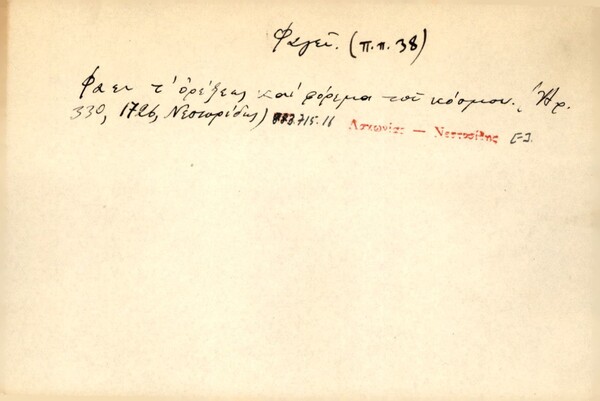 Φαγεῖ. (π.π. 38)
Φαει τ' ὀρέξεως καί φόρεμα τοῦ κόσμου. (Ἡρ.
330, 1726, Νεστορίδης) 715.11 Λακωνίας — Νεστορίδης [-].